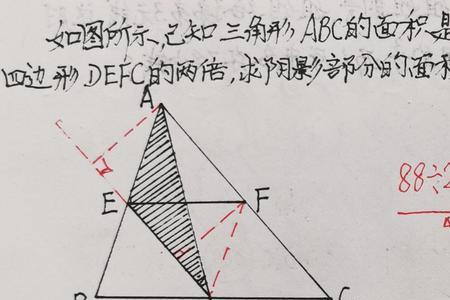 如图所示,已知三角形ABC的面积是
四边形DEFC的两倍,求阴影部分的面积
A
88÷2
E
F